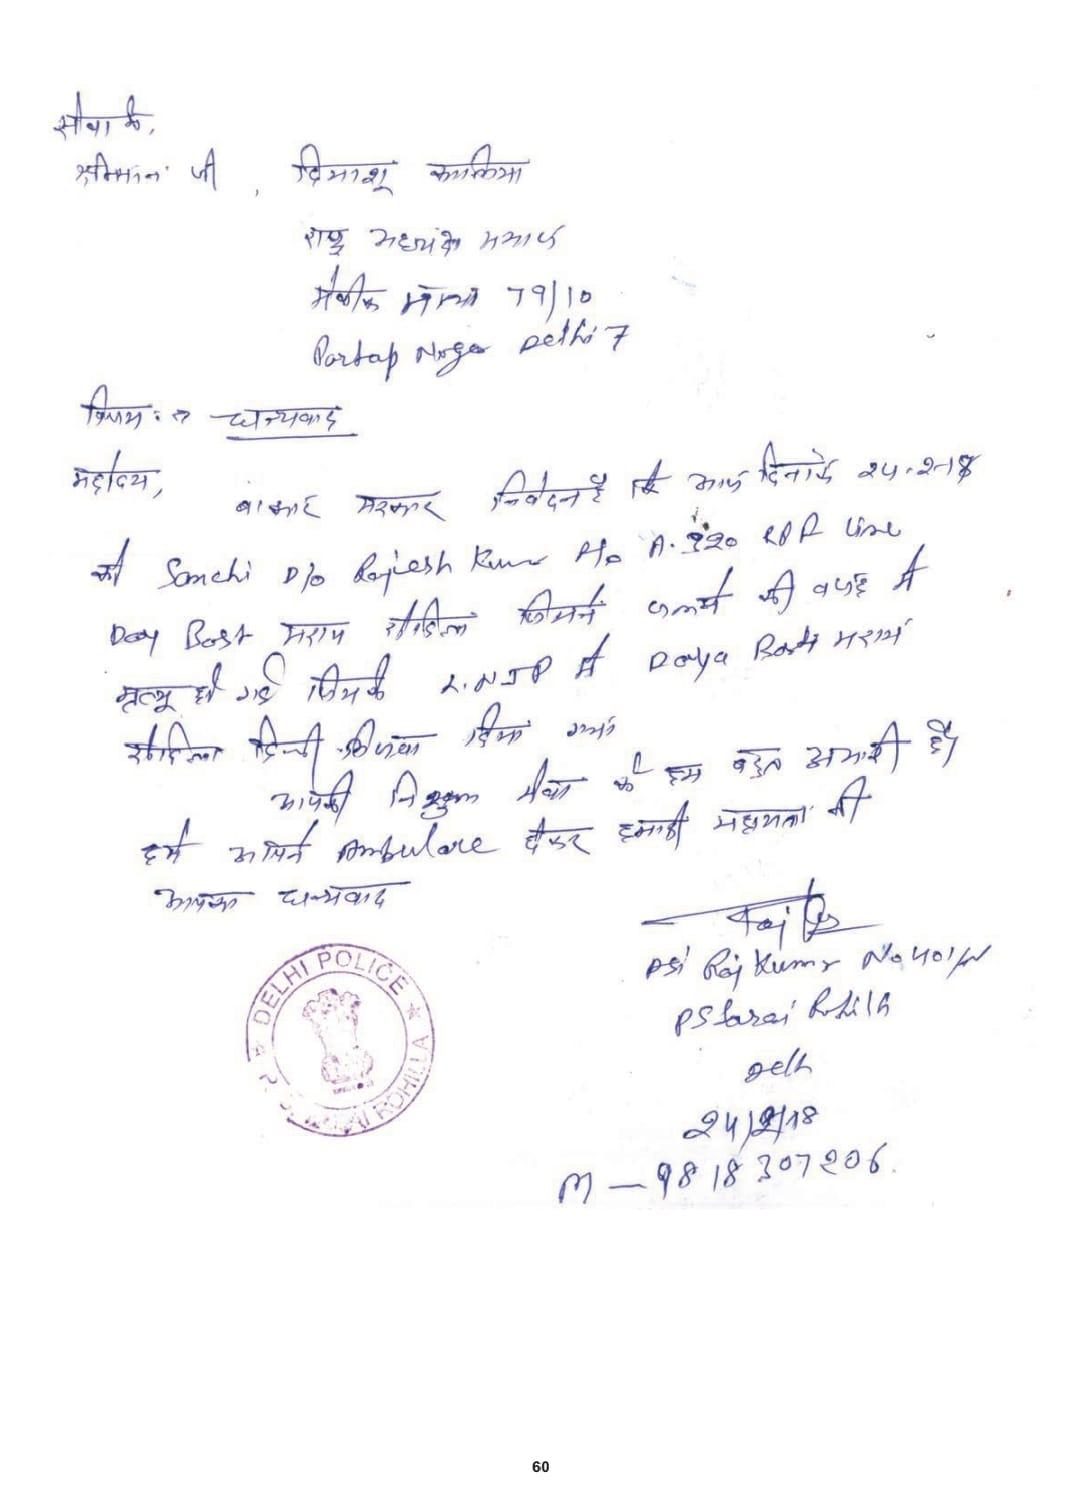 सेवा में,
श्रीमान जी, हिमांशु कालिया
राष्ट्र
79/10
Partap Nagar Delhi 7
विषय :- धन्यवाद
महोदय,
निवेदन है कि आज दिनांक 24-2-18
को Sanchi D/o Rajesh Kumar R/o A-320 RPF Line
Daya Basti सराय रोहिला जिसने जलने की वजह से
मृत्यू हो गई जिसको L.N.J.P से Daya Basti सराय
रोहिला दिल्ली दिया गया
आपकी निशुल्क सेवा के हम बहुत अभारी है
हमे आपने Ambulance देकर हमारी सहायता की
आपका धन्यवाद
Raj
Raj Kumar No 401/N
PS Sarai Rohilla
Delhi
24/2/18
M - 9818307206
DELHI POLICE
SARAI ROHILLA
60